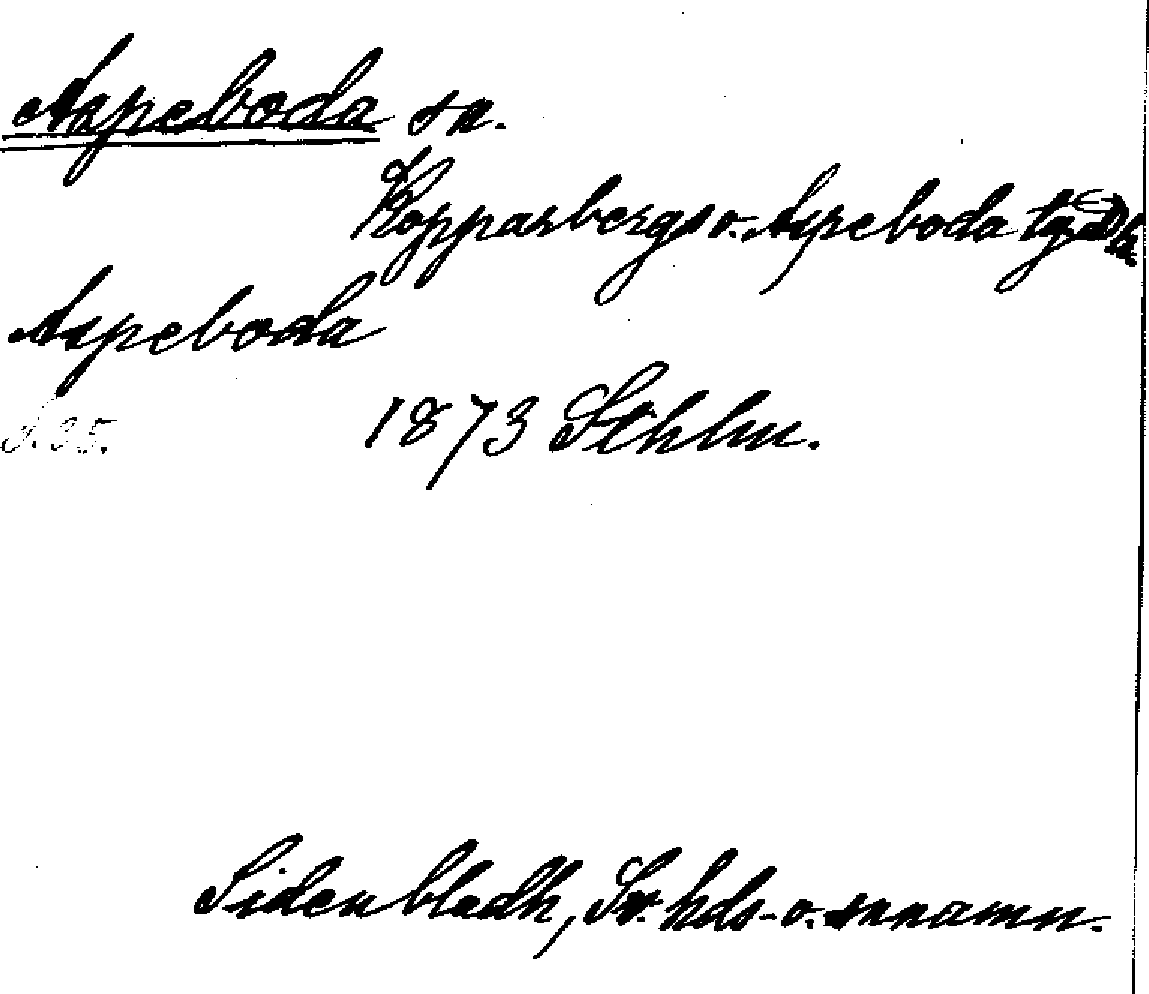 Aspeboda sn.
Kopparbergs o. Aspeboda tg
Aspeboda
S. 35.
1873 Sthlm.
Sidenbladh, Sv. hds- o. snnamn.